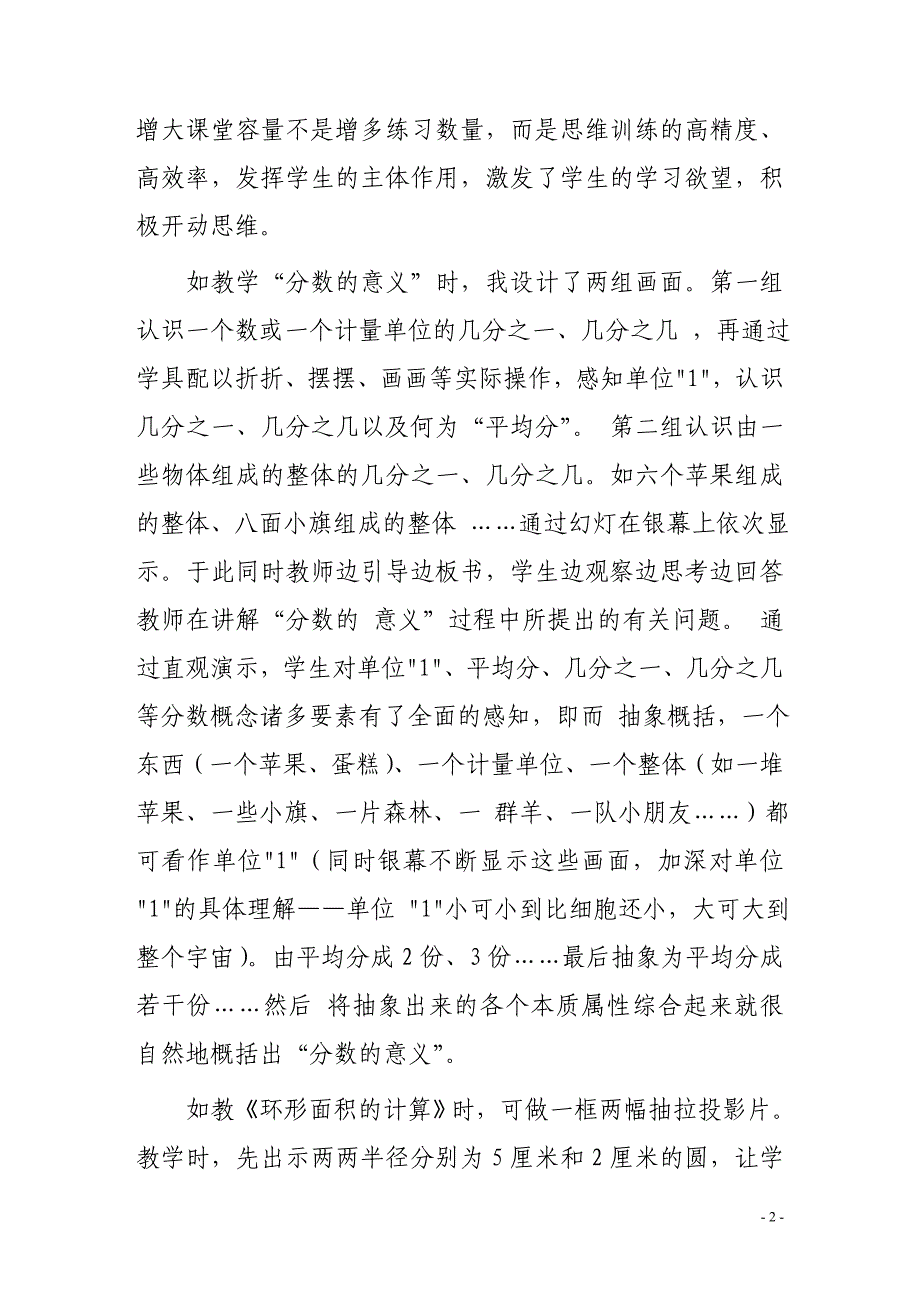 增大课堂容量不是增多练习数量，而是思维训练的高精度、
高效率，发挥学生的主体作用，激发了学生的学习欲望，积
极开动思维。
如教学“分数的意义”时，我设计了两组画面。第一组
认识一个数或一个计量单位的几分之一、几分之几 ，再通过
学具配以折折、摆摆、画画等实际操作，感知单位"1"，认识
几分之一、几分之几以及何为“平均分”。 第二组认识由一
些物体组成的整体的几分之一、几分之几。如六个苹果组成
的整体、八面小旗组成的整体 ……通过幻灯在银幕上依次显
示。于此同时教师边引导边板书，学生边观察边思考边回答
教师在讲解“分数的 意义”过程中所提出的有关问题。 通
过直观演示，学生对单位"1"、平均分、几分之一、几分之几
等分数概念诸多要素有了全面的感知，即而 抽象概括，一个
东西（一个苹果、蛋糕）、一个计量单位、一个整体（如一堆
苹果、一些小旗、一片森林、一 群羊、一队小朋友……）都
可看作单位"1"（同时银幕不断显示这些画面，加深对单位
"1"的具体理解——单位 "1"小可小到比细胞还小，大可大到
整个宇宙）。由平均分成 2 份、3 份……最后抽象为平均分成
若干份……然后 将抽象出来的各个本质属性综合起来就很
自然地概括出“分数的意义”。
如教《环形面积的计算》时，可做一框两幅抽拉投影片。
教学时，先出示两两半径分别为 5 厘米和 2 厘米的圆，让学
- 2 -